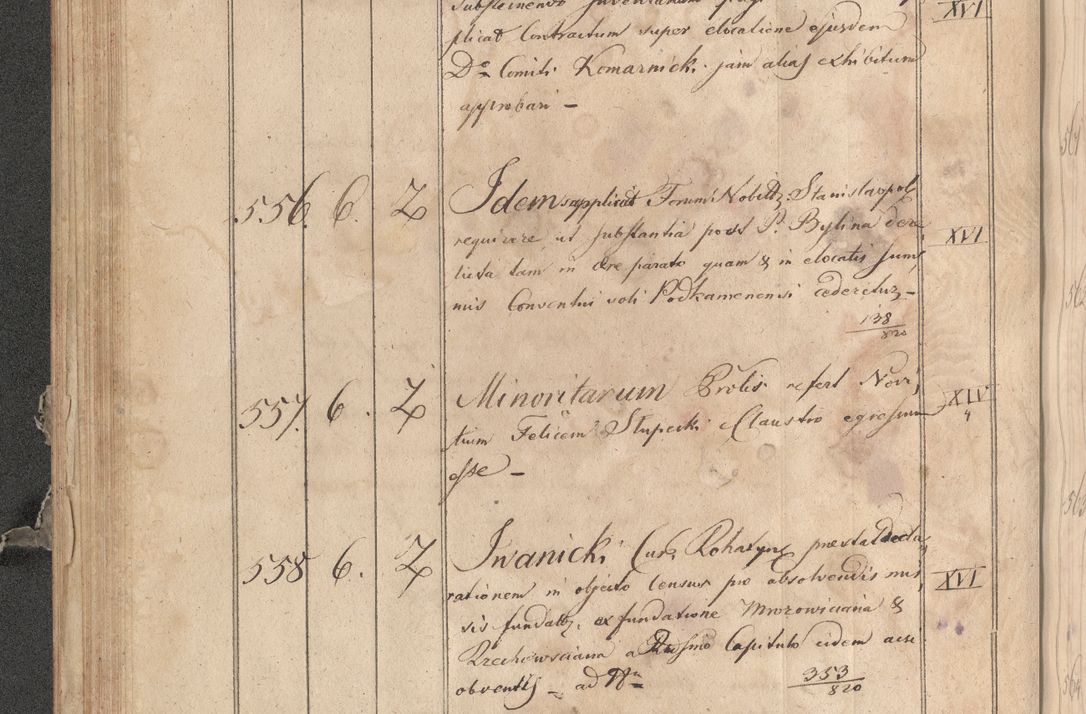 plicat Contractum super elocatione ejusdem XVI
Dno Comiti Komarnicki jam alias exhibitum
approbari –
556. 6. Z Idem supplicat Forum Nobil. Stanislaopol.
requirare ut substantia post P. Bylina dere XVI
licta tam in aere parato quam & in elocatis sum
mis Conventui soli Podkamenensi cederetur –
138
820
557. 6. Z Minoritarum Prolis refert Novi XIV
tium Felicem Slupecki e Claustro egressum 4
esse –
558 6. Z Iwanicki Cur. Rohatyn. praestat decla
rationem in objecto Census pro absolvendis mis XVI
sis fundat. ex fundatione Mrozowiciana &
Rzechowsciana a Rssmo Capitulo eidem acci
obventis – ad Nrm 353
820